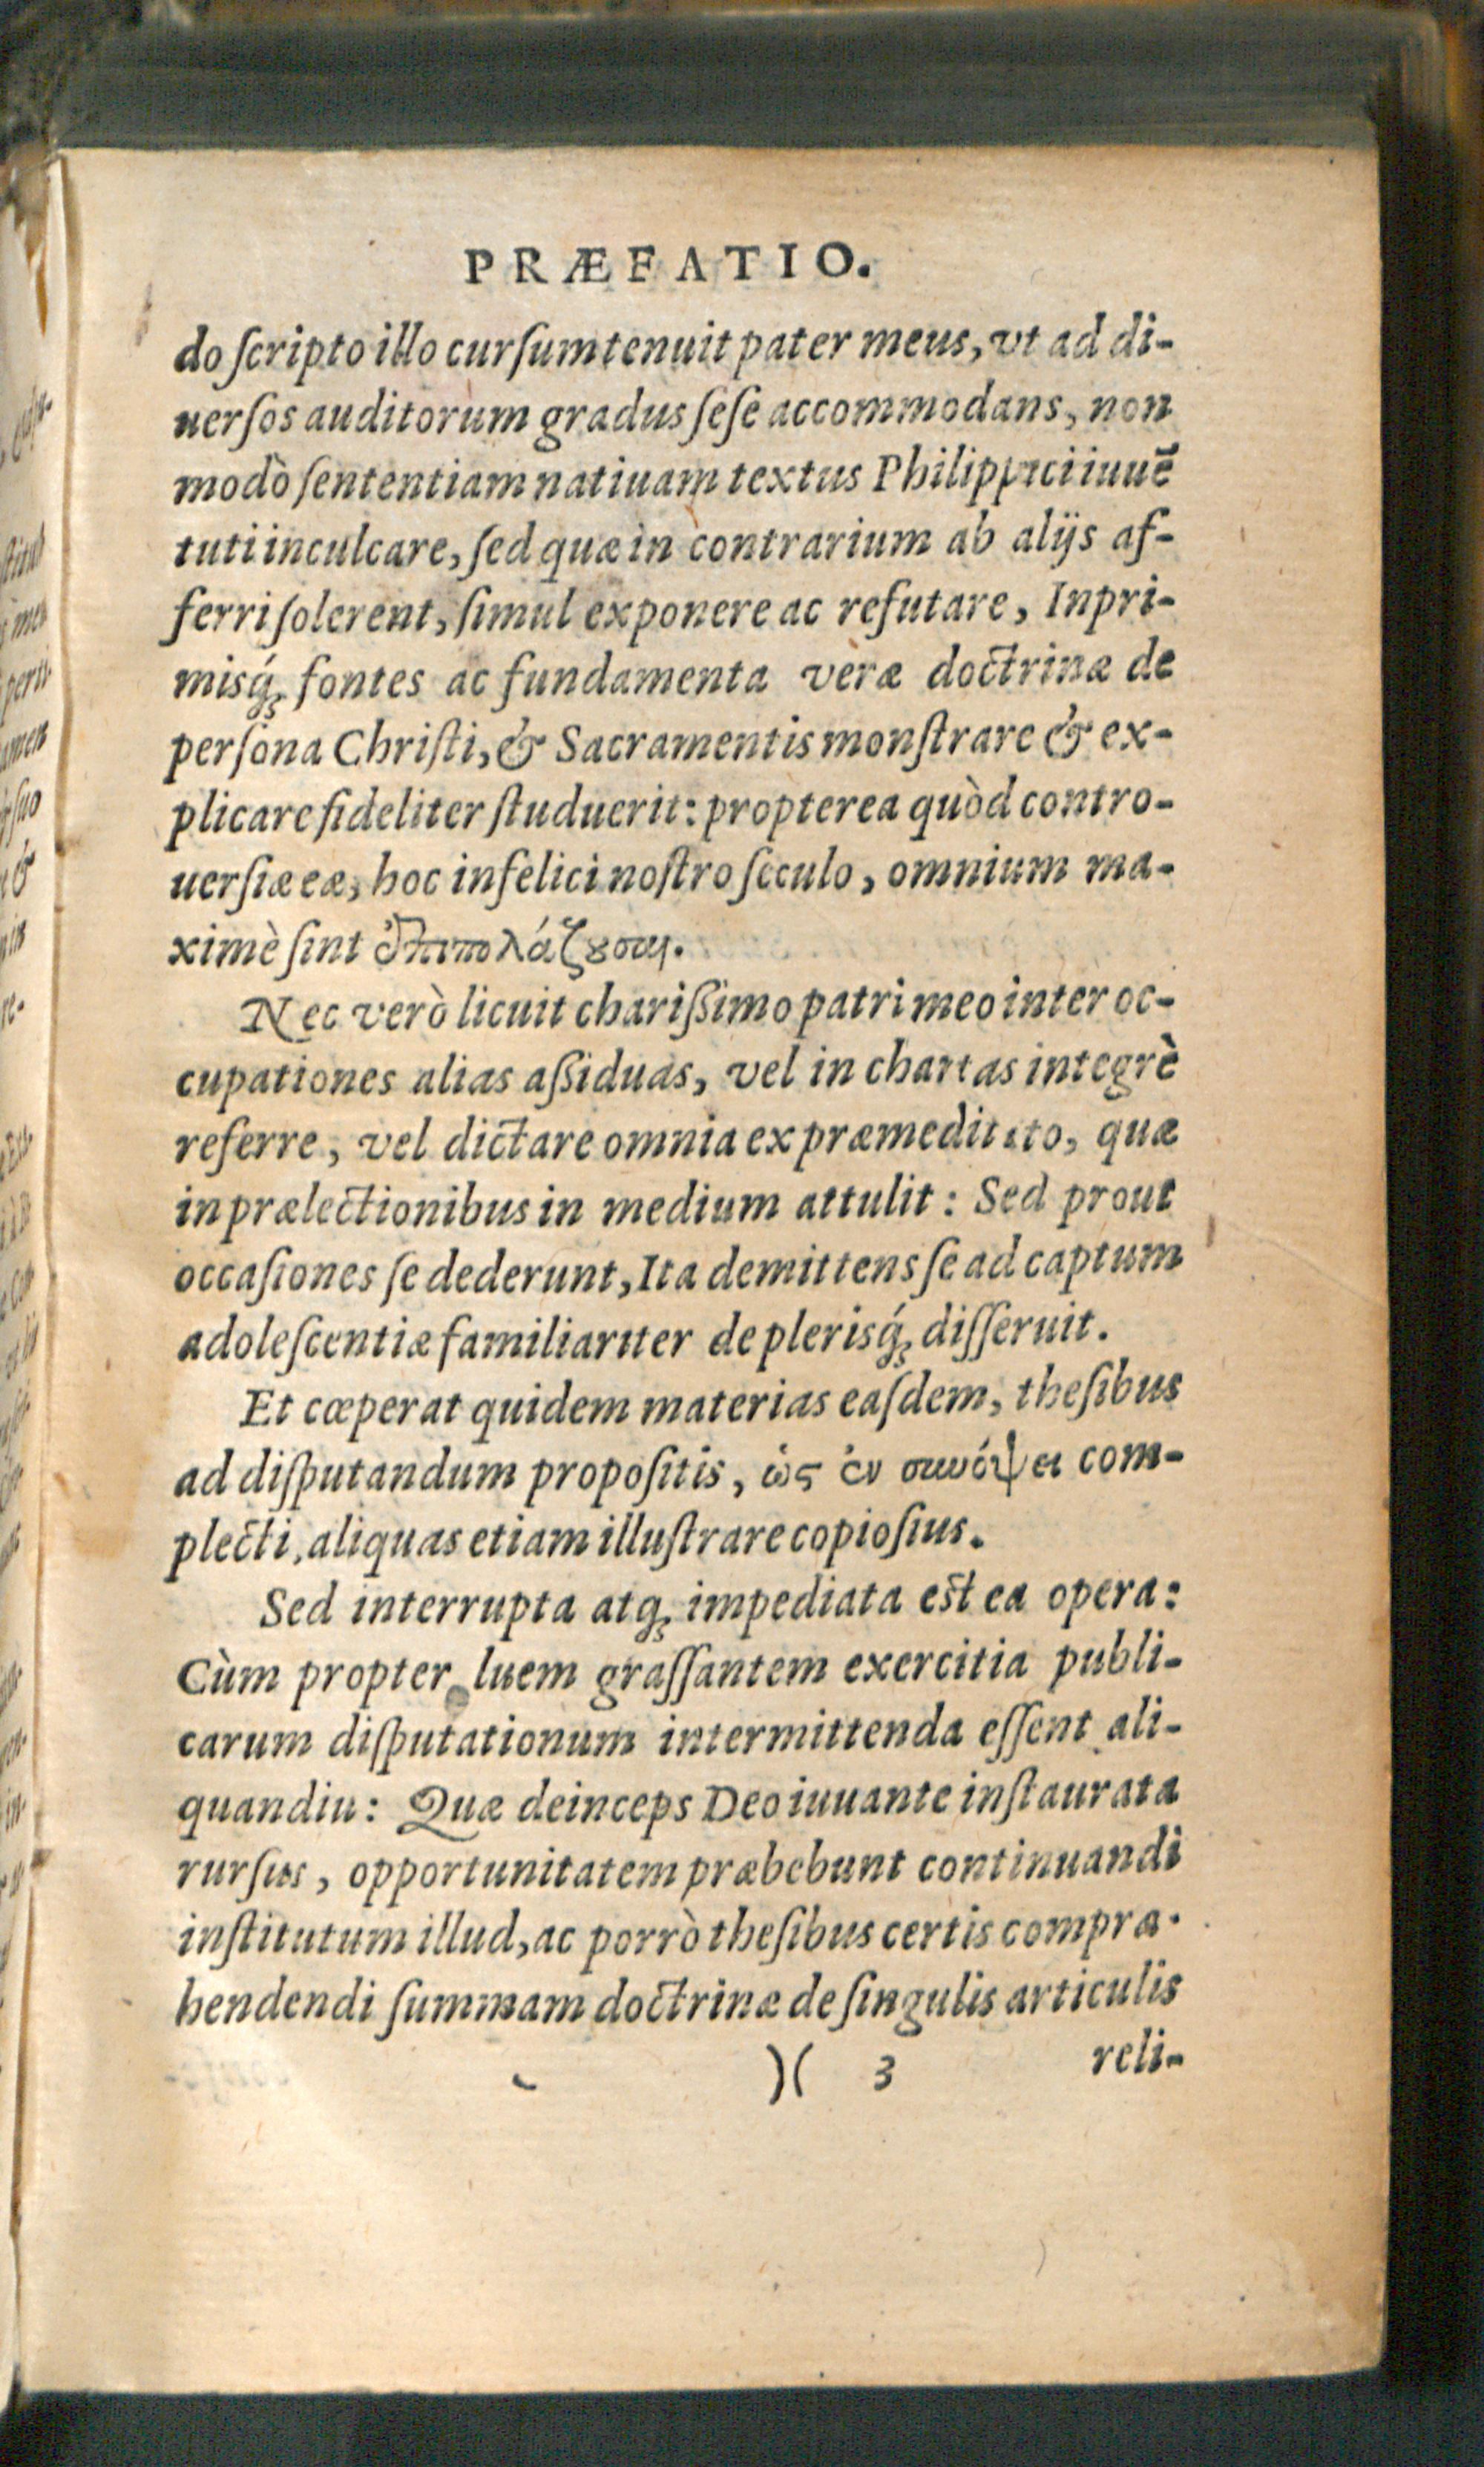 PRÆFATIO.
do ſcripto illo curſum tenuit pater meus, vt ad di-
uerſos auditorum gradus ſeſe accommodans, non
modò ſententiam natiuam textus Philippici iuuē
tuti inculcare, ſed quæ in contrarium ab alijs af-
ferri ſolerent, ſimul exponere ac refutare, Inpri-
misq́; fontes ac fundamenta veræ doctrinæ de
perſona Chriſti, & Sacramentis monſtrare & ex-
plicare fideliter ſtuduerit: propterea quòd contro-
uerſiæ eæ, hoc infelici noſtro ſeculo, omnium ma-
ximè ſint ἐπιπολάζουσαι.
Nec verò licuit chariſsimo patri meo inter oc-
cupationes alias aſsiduas, vel in chartas integrè
referre, vel dictare omnia ex præmeditato, quæ
in prælectionibus in medium attulit: Sed prout
occaſiones ſe dederunt, Ita demittens ſe ad captum
adoleſcentiæ familiariter de pleriſq́; diſſeruit.
Et cœperat quidem materias eaſdem, theſibus
ad diſputandum propoſitis, ὡς ἐν συνόψει com-
plecti, aliquas etiam illuſtrare copioſius.
Sed interrupta atq; impediata eſt ea opera:
Cùm propter luem graſſantem exercitia publi-
carum diſputationum intermittenda eſſent ali-
quandiu: Quæ deinceps Deo iuuante inſtaurata
rurſus, opportunitatem præbebunt continuandi
inſtitutum illud, ac porrò theſibus certis compra-
hendendi ſummam doctrinæ de ſingulis articulis
)( 3 reli-